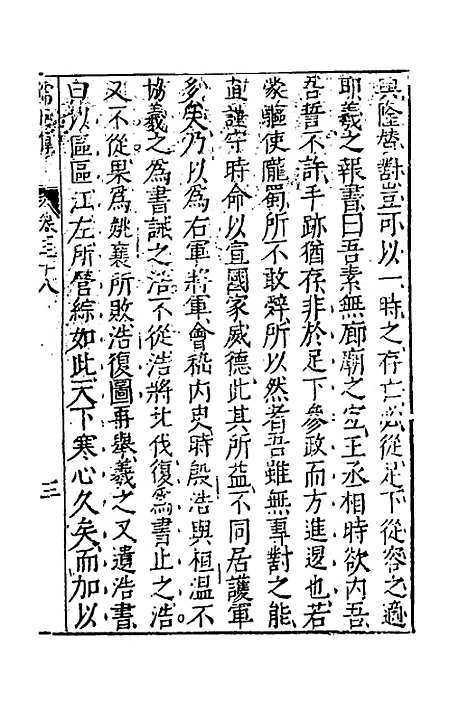 興隆替對豈可以一時之存亡必從足下從容之適
耶羲之報書曰吾素無廊廟之志王丞相時欲内吾
吾誓不許手跡猶存非於足下參政而方進退也若
蒙驅使隴蜀所不敢辤所以然者吾雖無專對之能
直謹守時命以宣國家威德此其所益不同居護軍
多矣乃以爲右軍將軍會稽内史時殷浩與桓温不
協羲之爲書誡之浩不從浩將北伐復爲書止之浩
又不從果爲姚襄所敗浩復圖再舉羲之又遺浩書
曰以區區江左所營綜如此天下寒心久矣而加以
卷三十八
三